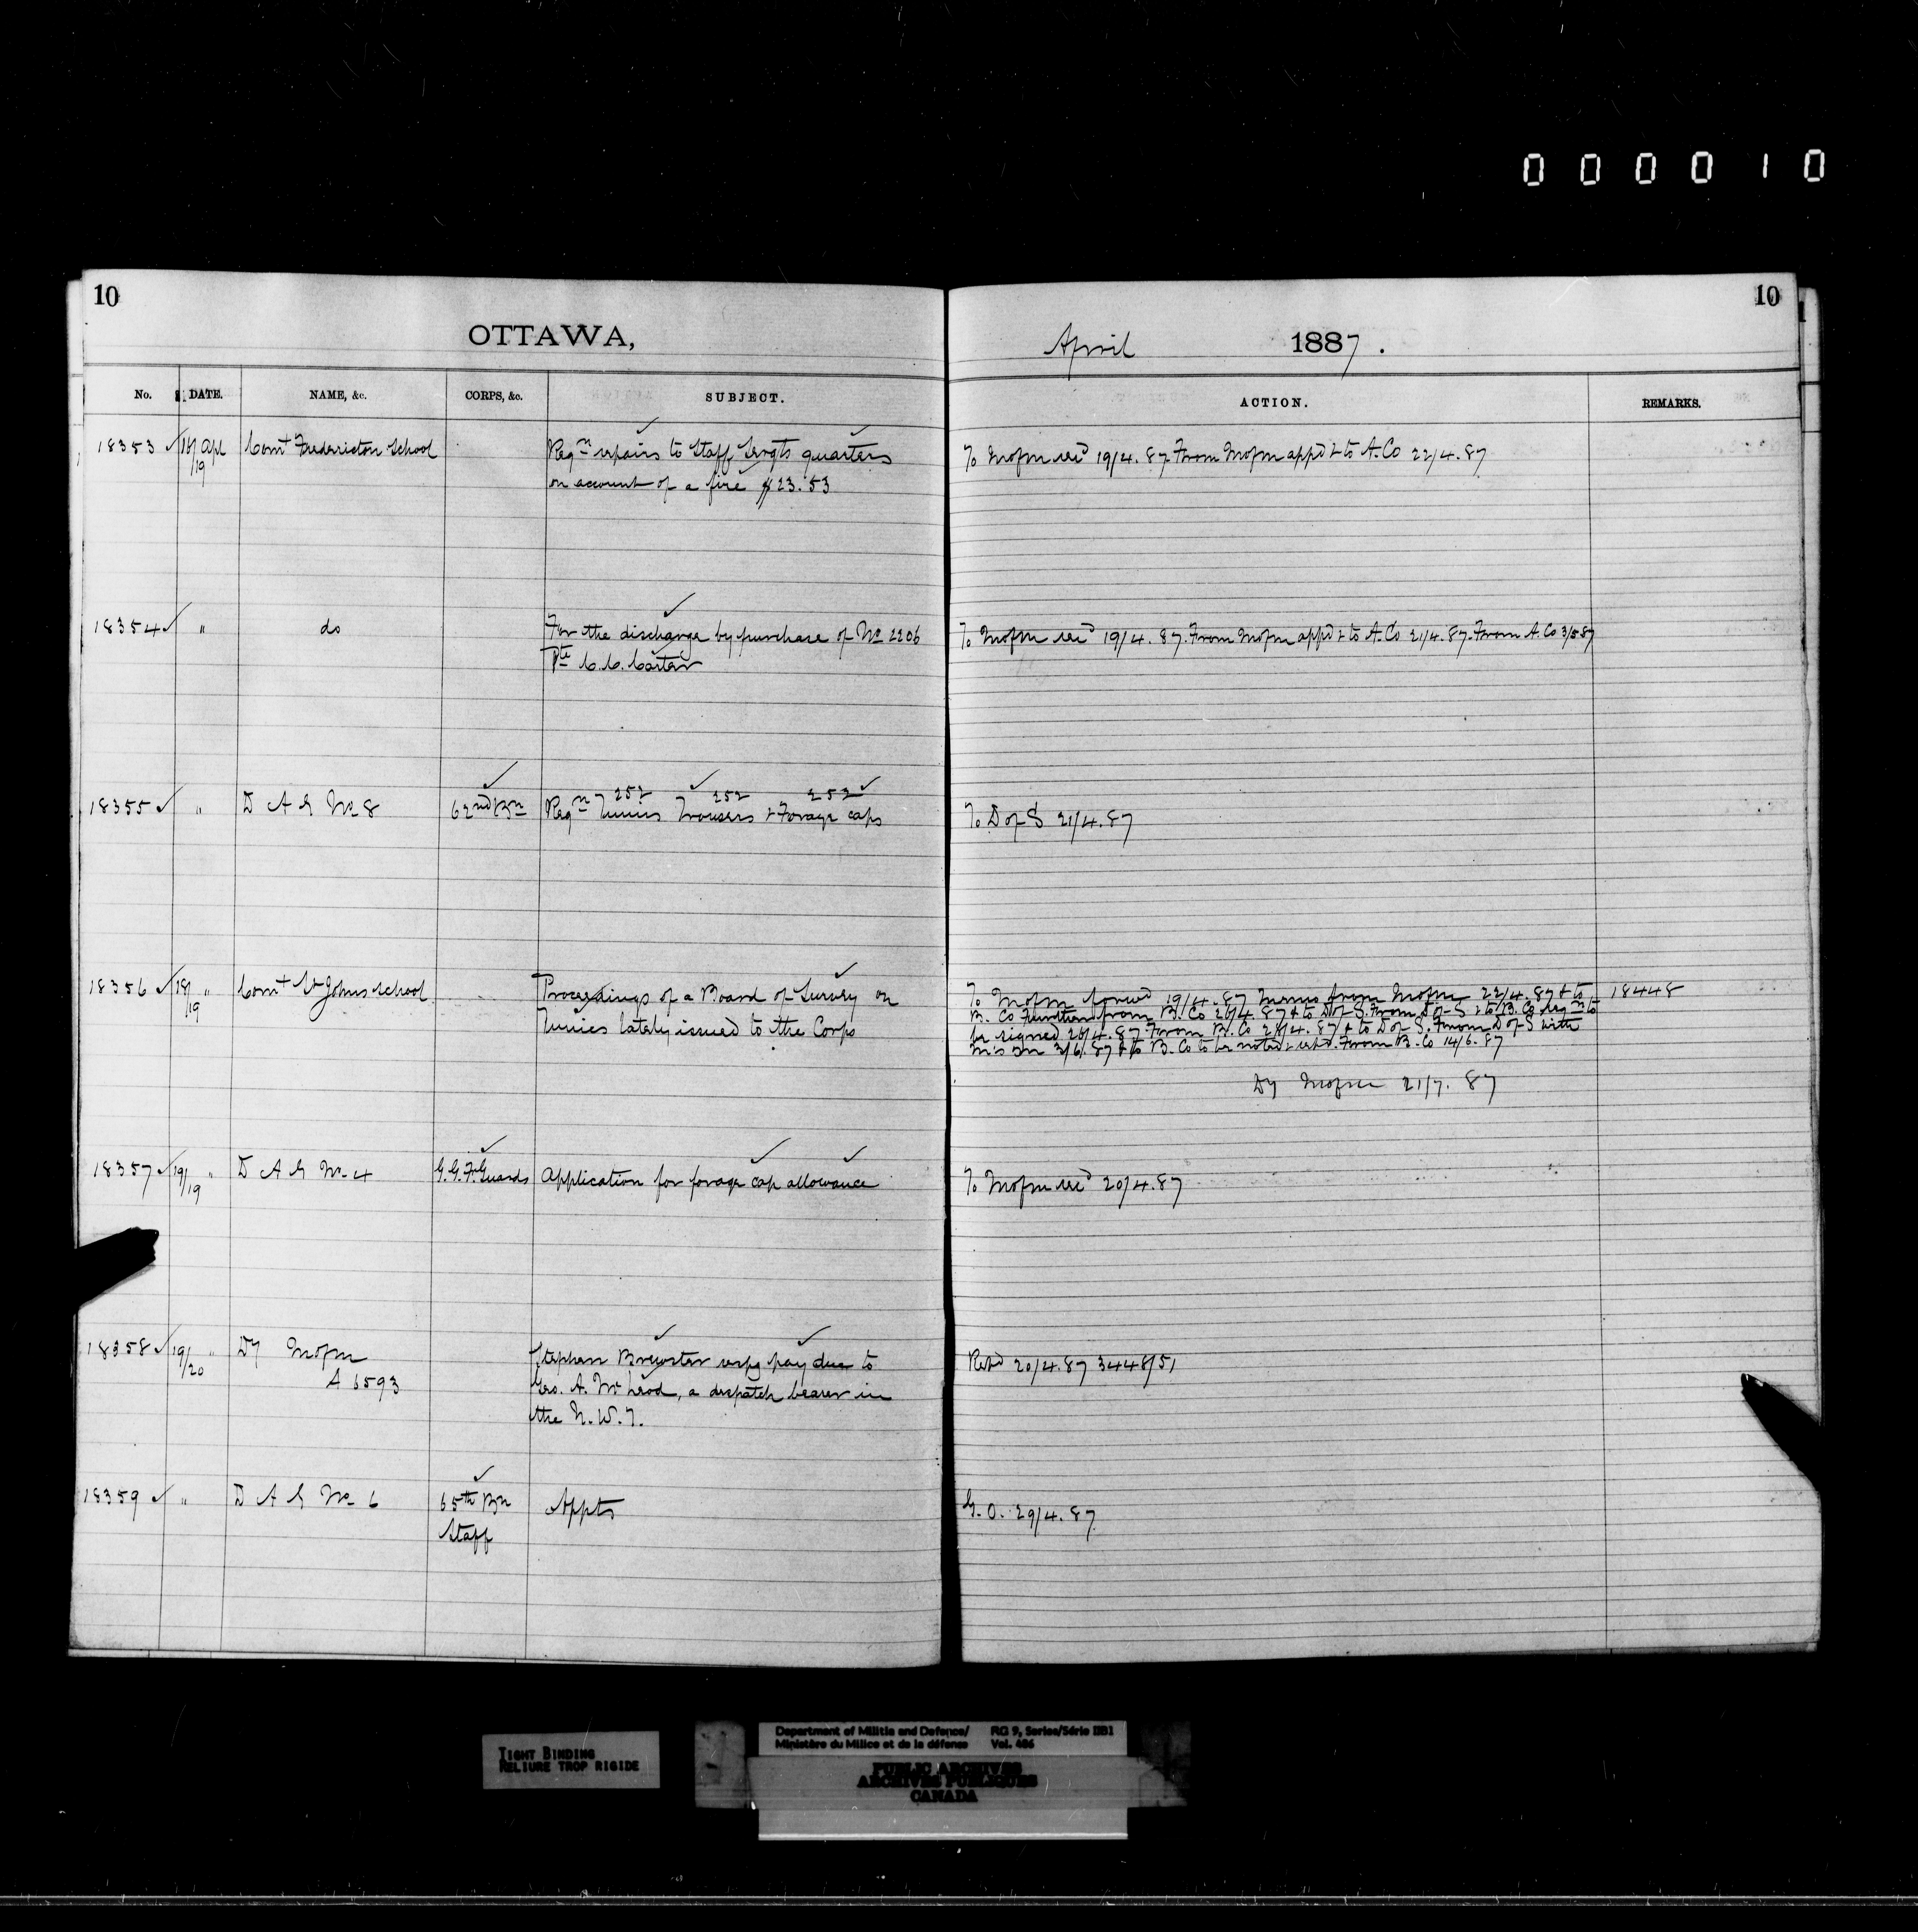 000010
10
OTTAWA,
No. DATE. NAME, &c. CORPS, &c. SUBJECT.
18353 18/19 Apl Comt Fredericton School Reqn repairs to Staff Sergts quarters
on account of a fire $23.53
18354 " do For the discharge by purchase of No 2206
Pte C.C. Carter
18355 " D A G No 8 62nd Bn Reqn 252 Tunics 252 Trousers & 252 Forage caps
18356 18/19 " Comt St Johns School Proceedings of a Board of Survey on
Tunics lately issued to the Corps
18357 19/19 " D A G No 4 G.G.F. Guards Application for forage cap allowance
18358 19/20 " Dy Mofm
A 6593
Stephen Brewster respg pay due to
Geo. A. McLeod, a despatch bearer in
the N.W.T.
18359 " D A G No 6 65th Bn
Staff
Appts
10
April 1887.
ACTION. REMARKS.
To Mofm recd 19/4.87. From Mofm appd & to A.Co 22/4.87
To Mofm recd 19/4.87. From Mofm appd & to A.Co 21/4.87. From A.Co 3/5 87
To D of S 21/4.87
To Mofm forwd 19/4.87 from Mofm 22/4.87 & to 18448
B. Co from B. Co 26/4.87 & to D of S. From D of S & to B. Co reqn to
be signed 26/4.87 From B. Co 28/4.87 & to D of S. From D of S with
3/6/87 & to B. Co to be noted & retd. From B. Co 14/6.87
Dy Mofm 21/7.87
To Mofm recd 20/4.87
Retd 20/4.87 3448/51
G.O. 29/4.87
TIGHT BINDING
RELIURE TROP RIGIDE
Department of Militia and Defence/
Ministère du Milice et de la défense
RG 9, Series/Série IIB1
Vol. 406
PUBLIC ARCHIVES
ARCHIVES PUBLIQUES
CANADA